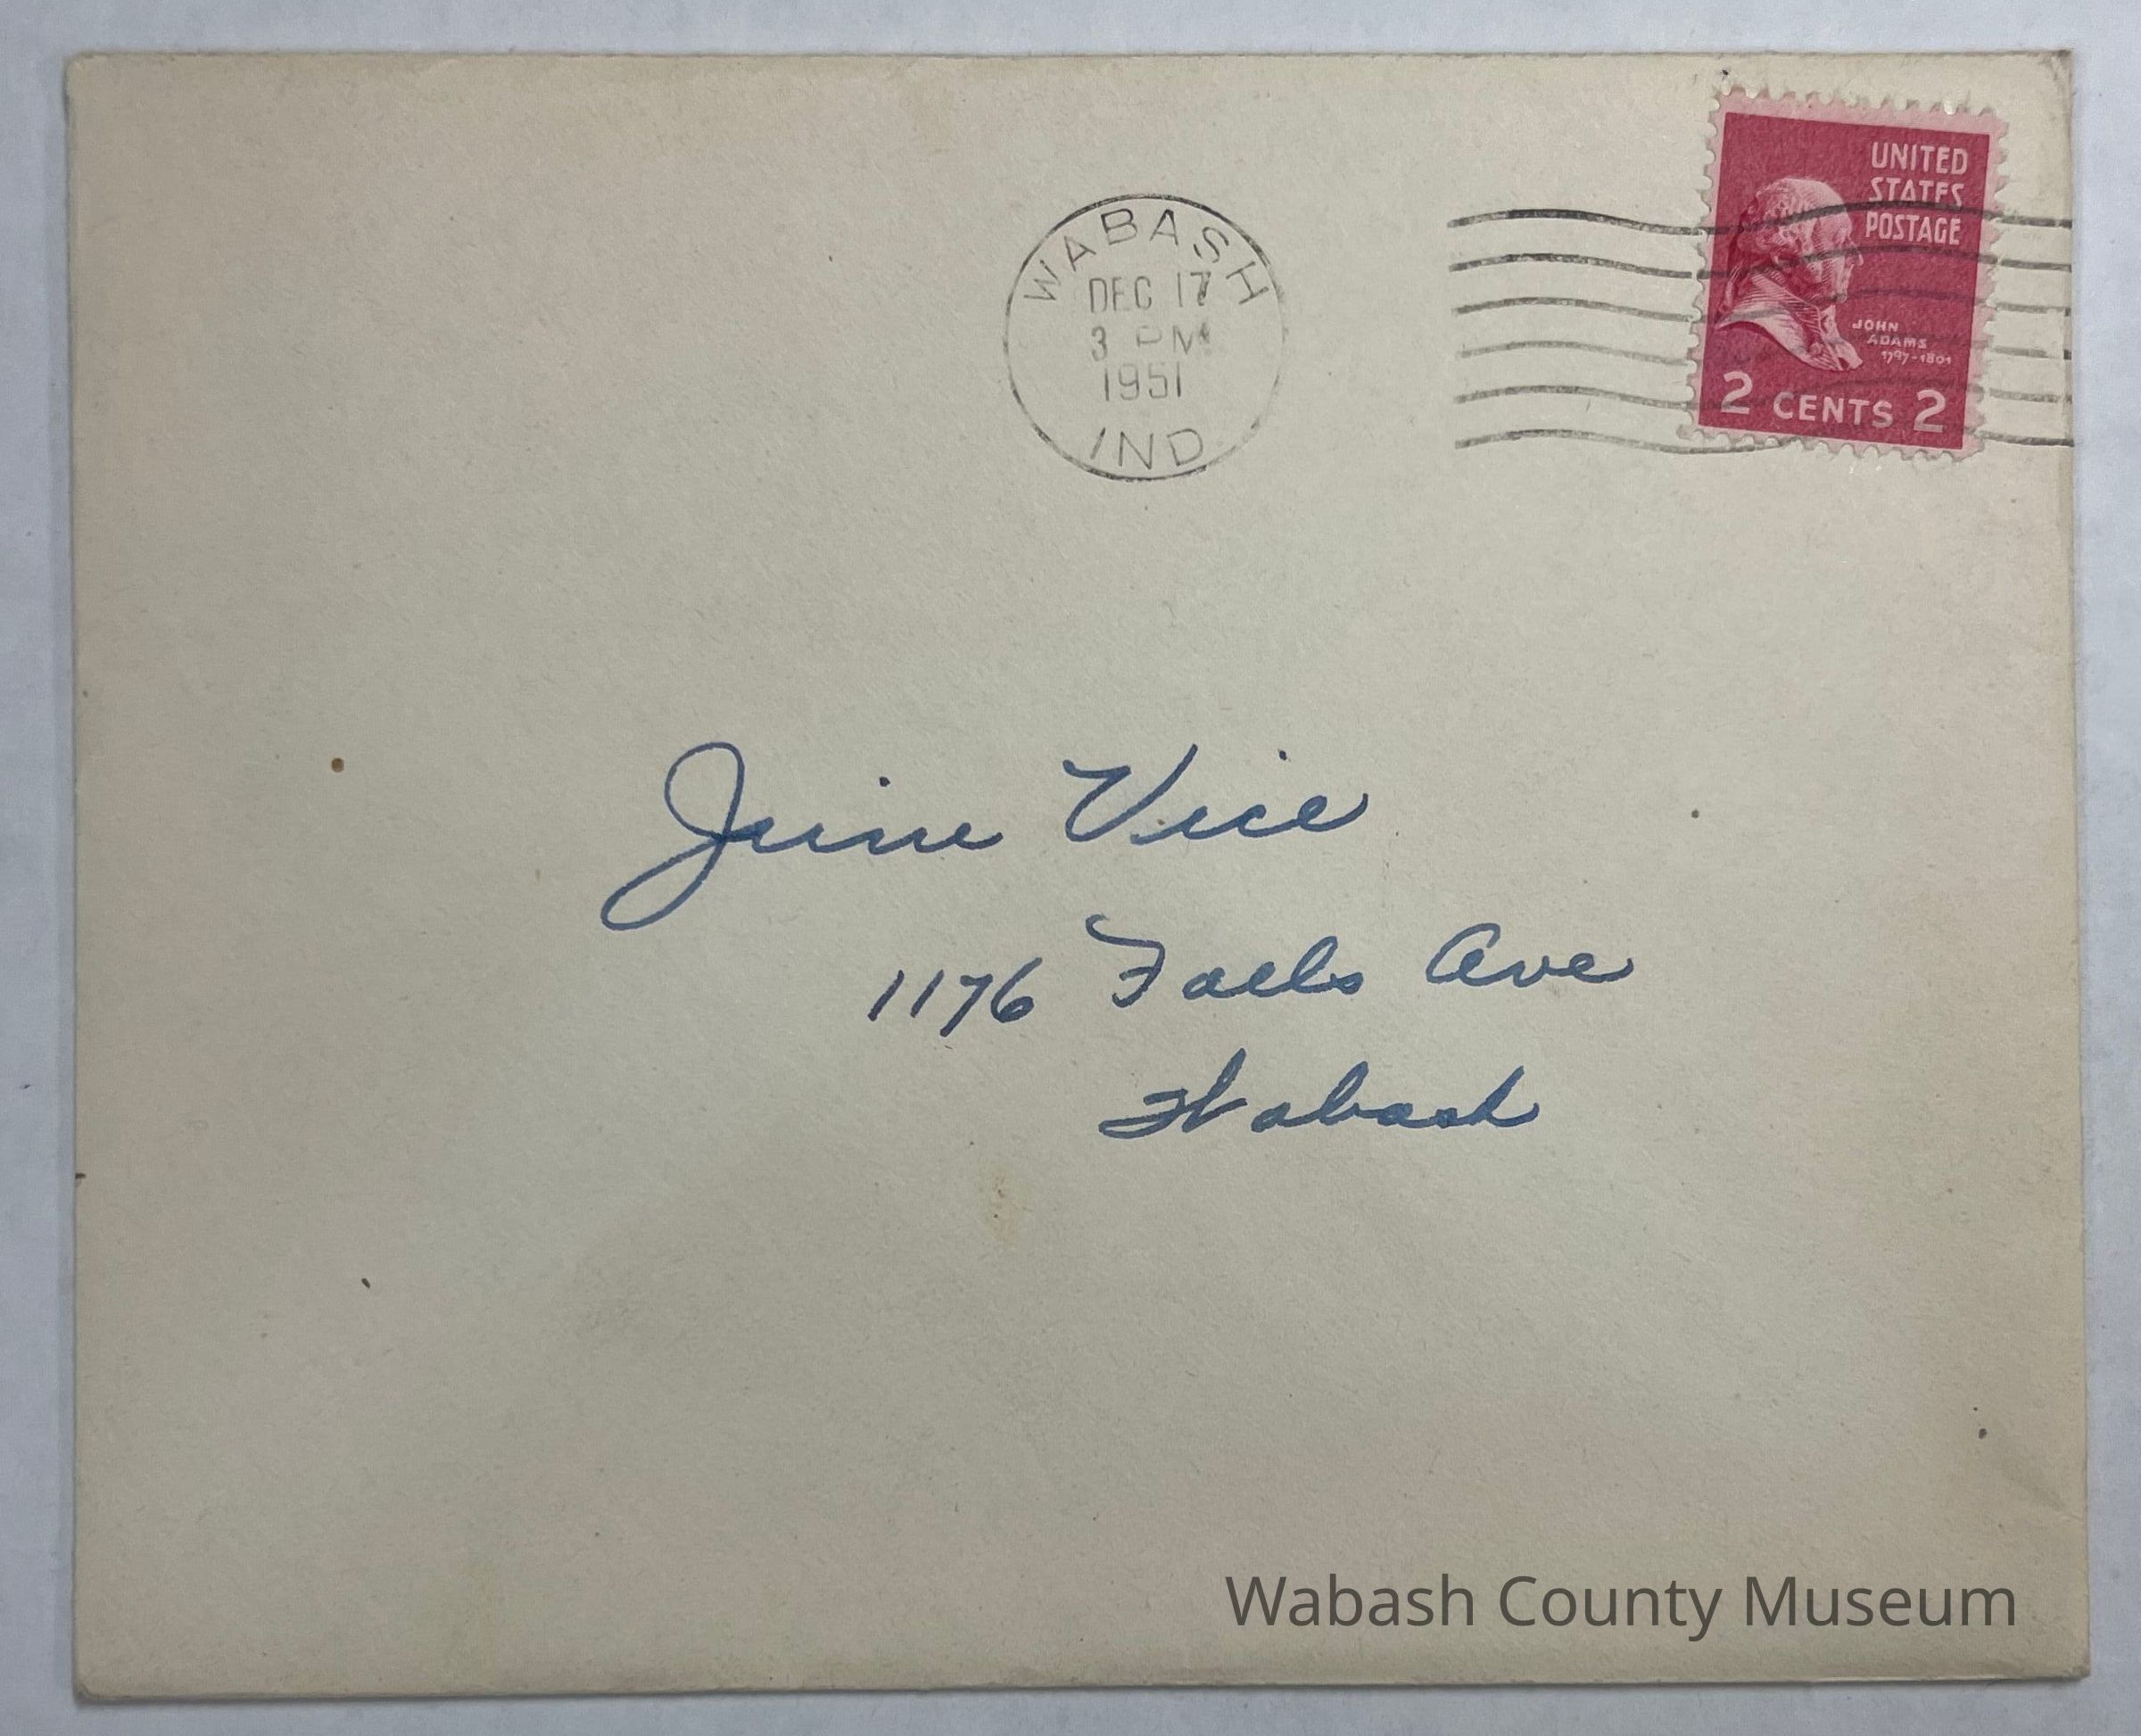 WABASH
DEC 17
3 PM
1951
IND
UNITED
STATES
POSTAGE
JOHN
ADAMS
1797-1801
2 CENTS 2
June Vice
1176 Falls Ave
Wabash
Wabash County Museum